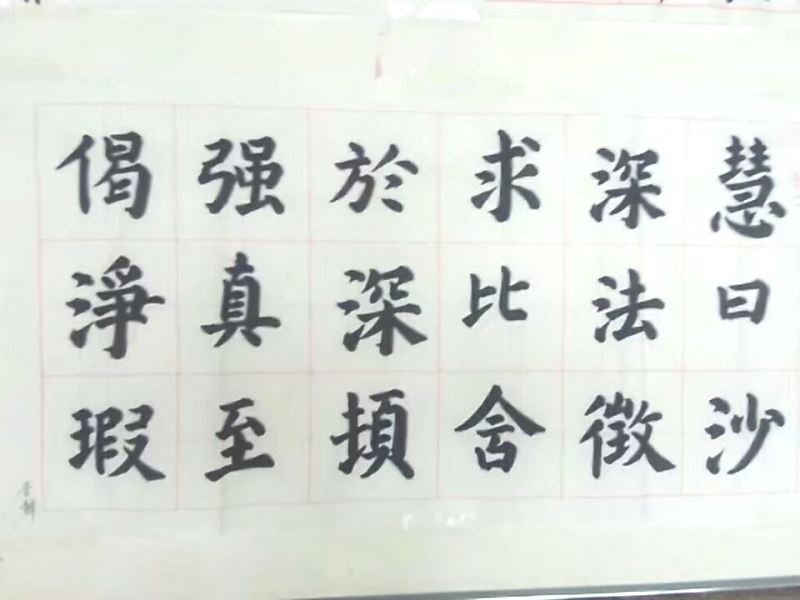 慧曰沙
深法徵
求比舍
於深頊
强真至
偈淨瑕